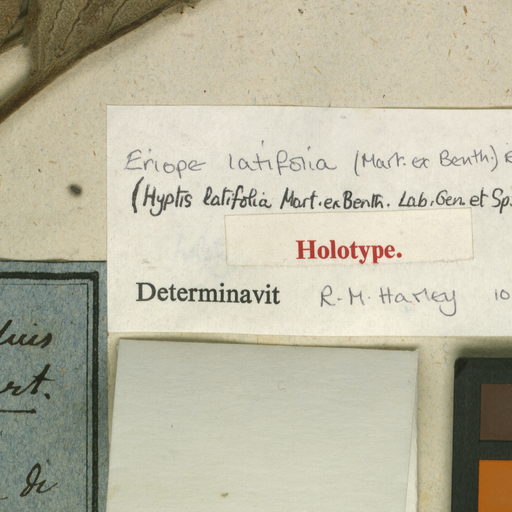 Eriope latifolia (Mart. ex Benth.) E
(Hyptis latifolia Mart. ex Benth. Lab. Gen. et Sp.
Holotype.
Determinavit R. M. Harley 10
de